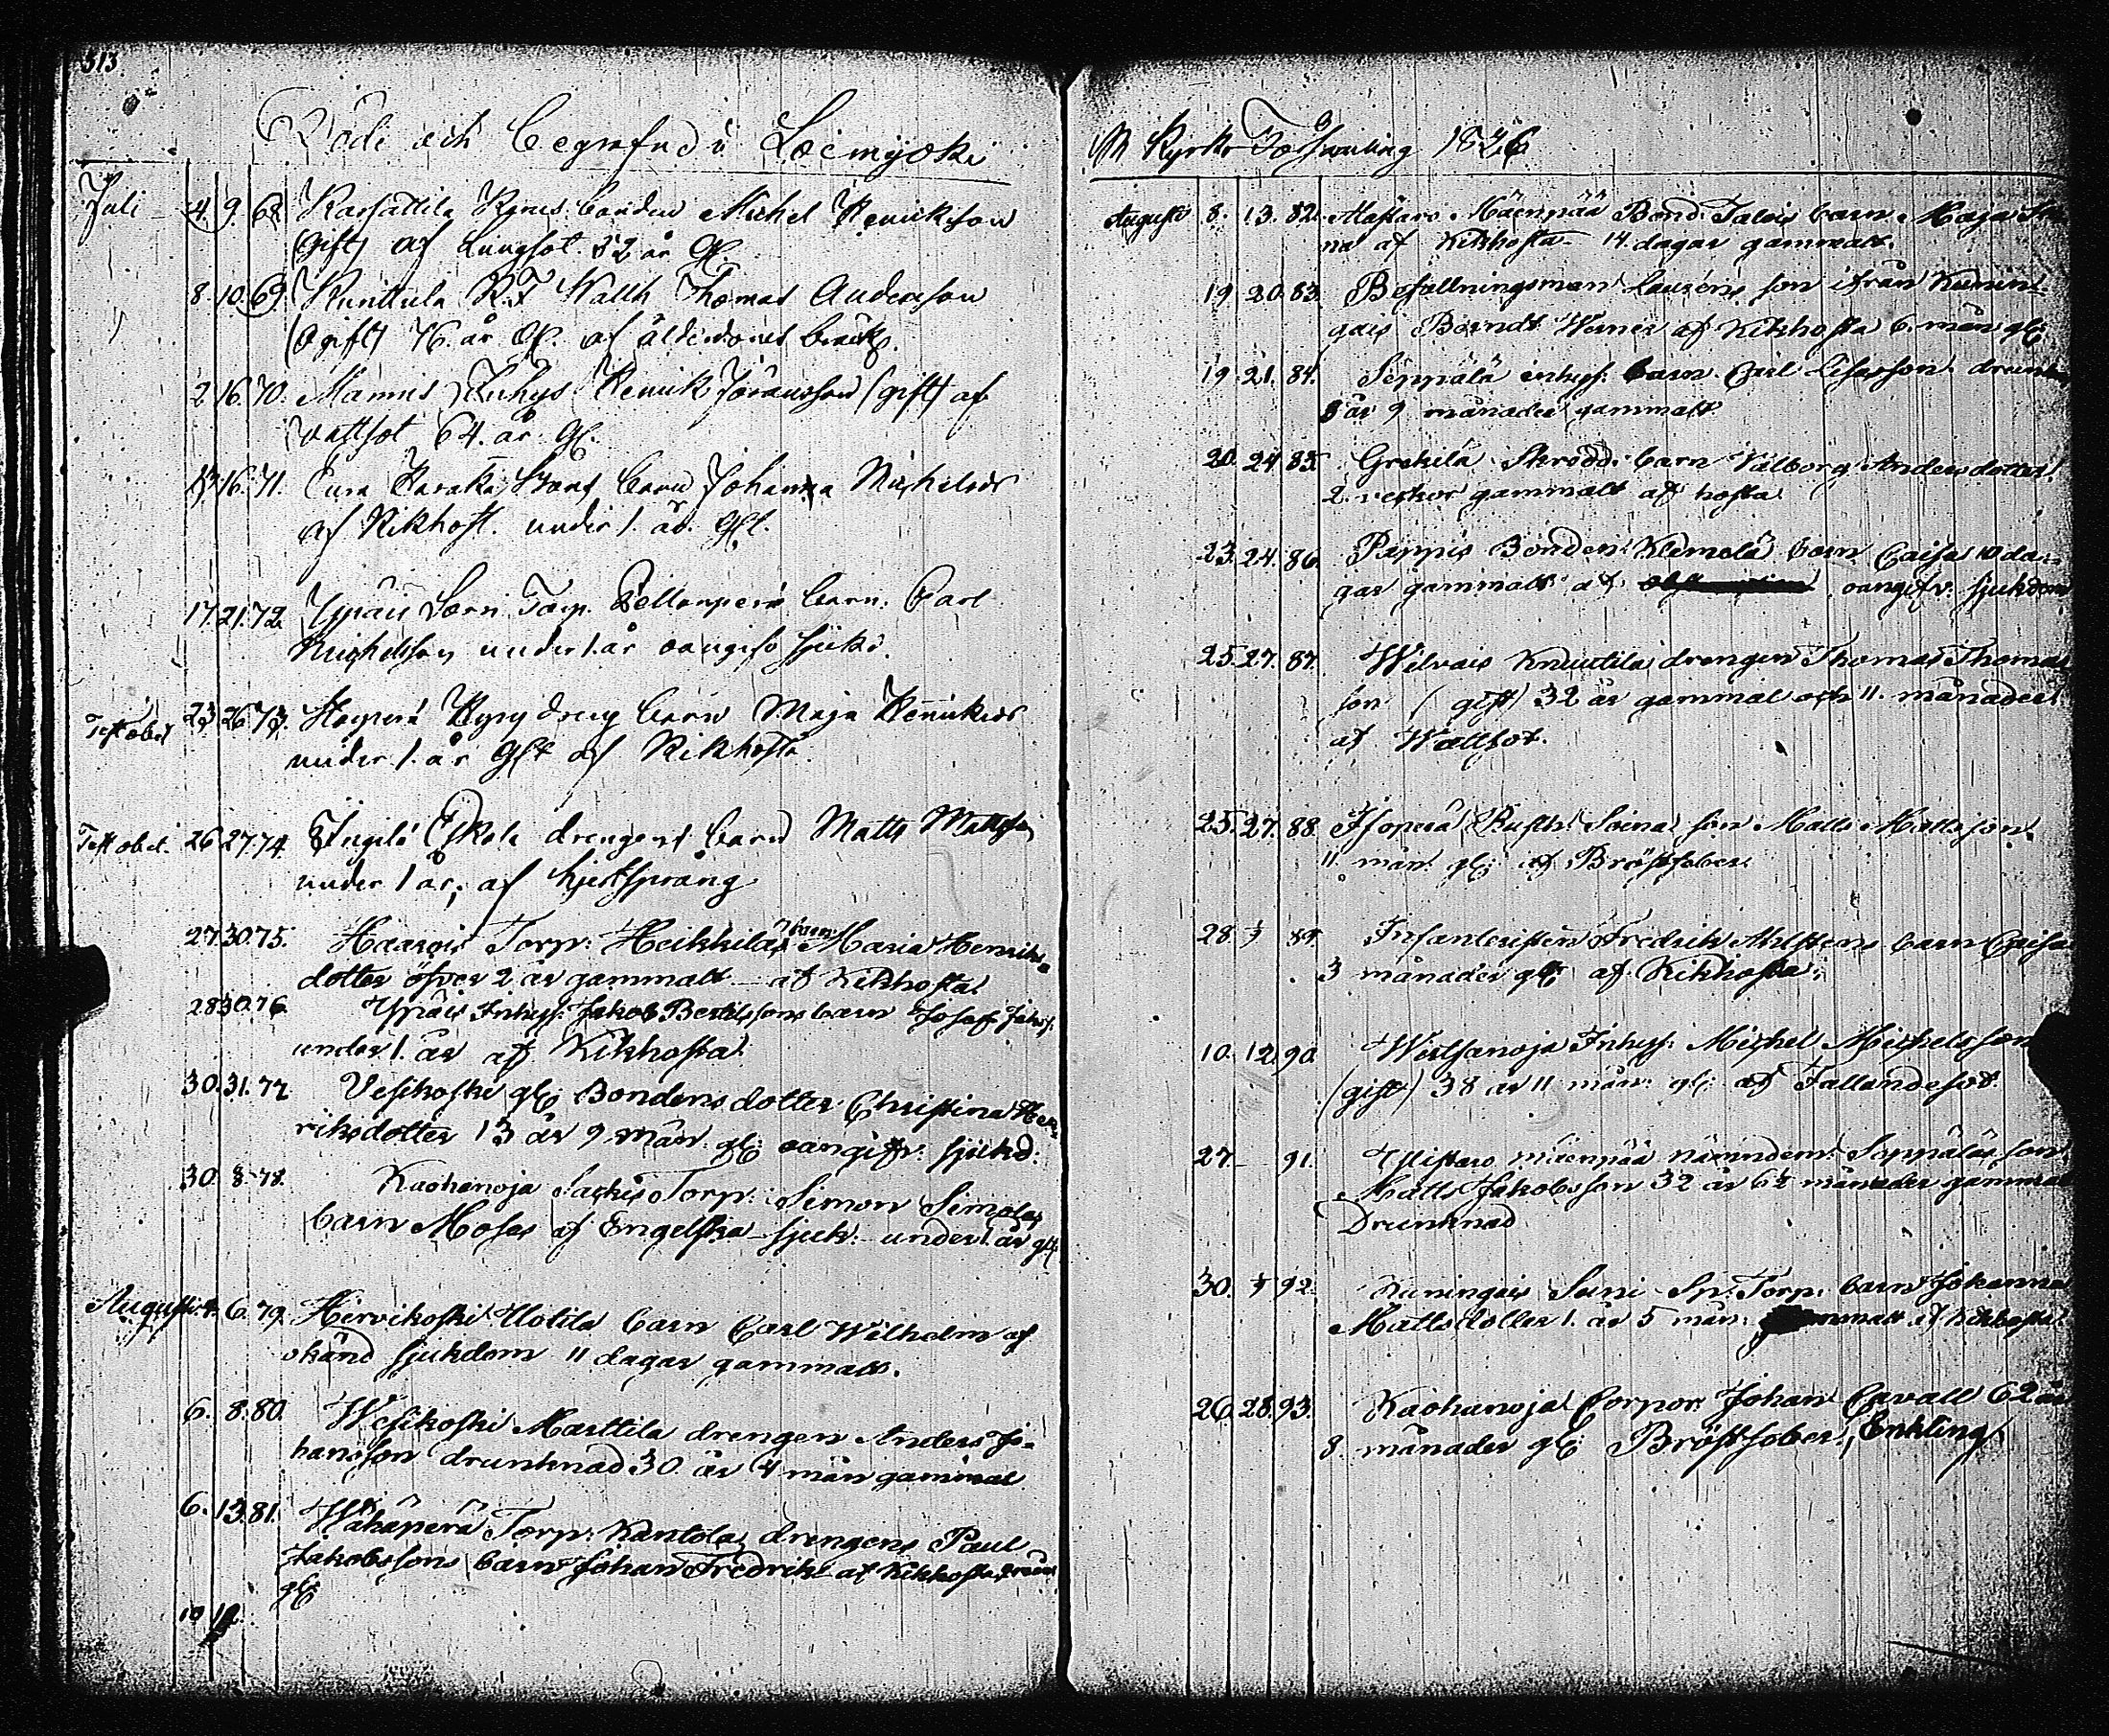 313
Döde och begrafne i Loimijoki
Juli 4. 9. 68. Karsattila Kyrös bonden Michel Henricksson
(Gift) af Lungsot 52 år Gl.
8. 10. 69. Kunttula R.F. Wallh Thomas Andersson
(Ogift) 76. år Gl. af ålderdoms bräckl.
2 16. 70. Mannis Inhys Henrik Jöransson (gift) af
vattsot 64. år Gl.
13 16. 71. barn Johanna Michelsdr
af Kikhost. under 1. år. Glt.
17. 21. 72. Ypäis Torp. barn. Carl
Michelsson under 1. år oangifv sjukd.
Test obol 23 26 73. dreng barn Maja Henriksdr
under 1. år Glt af Kikhosta.
Test obol. 26 27. 74. Eskola drengens barn Matts Mattsson
under 1 år; af hjertsprång
27. 30. 75. Haarois Torp: Heikkiläs barn Maria Henriks
dotter öfver 2 år gammalt af Kikhosta.
28 30. 76. Ypäis Inhys: Jakob Bertilssons barn Josef Jakobs.
under 1. år af Kikhosta.
30. 31. 77 Vesikoski gl: Bondens dotter Christina Hen
riksdotter 13 år 9 mån gl: oangifv: sjukd:
30. 8. 78. Kaohanoja Torp: Simon Simolas
barn Moses af Engelska sjuk: under 1. år gl:
Augusti 4. 6. 79. Hirvikoski Uotila barn Carl Wilhelm af
okänd sjukdom 11 dagar gammalt.
6. 8. 80. Wesikoski Marttila drengen Anders Jo-
hansson drunknad 30. år 4 mån gammal
6. 13. 81. Wähäperä Torp: Kantola drengens Paul
Jakobssons barn Johan Fredrik af Kikhosta
gl:
10 12
M Kyrko Församling 1826
Augusti 8. 13. 82. Mäenpää Bond: Talois barn Maja
na af Kikhosta 14. dagar gammalt.
19. 20. 83. Befallningsman Lauréns son ifrån Kunin
gais Berndt Werner af Kikhosta 6. mån gl:
19. 21. 84. Seppälä inhys: barn Carl Lisasson drunkn
3 år 9 månader gammalt
20. 24 85. Grekilä Skrodd: barn Valborg Andersdotter
2. veckor gammalt af hosta
23. 24. 86. Pappis Bonden Klemolä barn Caisa 10 da-
gar gammalt af oangifv: sjukdom
25. 27. 87. Wilvais Knuutila drengen Thomas Thomas
son (gift) 32 år gammal och 11. månader
af Wattsot.
25. 27. 88. Isoperä Rusth: Soina son Matts Mattsson.
11 mån gl: af Bröstfeber.
28. 3 89. Infanteristen Fredrik Ahlstens barn Caisa
3 månader gl: af Kikhosta.
10. 12. 90. Wirtsanoja Inhys: Michel Michelsson
(gift) 38 år 11 mån: gl: af Fallandesot
27 91. Ylistaro mäenpää nämndem: Seppäläs son
Matts Jakobsson 32 år 6½ månader gammal
Drunknad
30. 3 92. Kuningais Suni Sp: Torp: barn Johanna
Mattsdotter 1. år 5 mån: gammalt af kikhosta
26. 28. 93. Kaohanoja Corpor: Johan Cavall 62 år
8. månader gl: Bröstfeber, Enkling